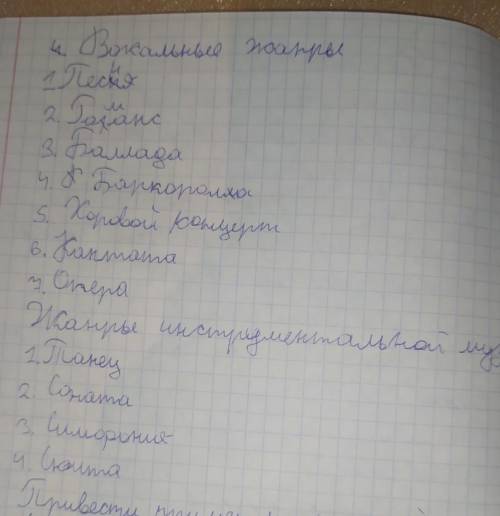 4. Вокальные жанры
1. Песня
2. Романс
3. Баллада
4. Баркоролла
5. Хоровой концерт
6. Кантата
7. Опера
Жанры инструментальной муз
1. Танец
2. Соната
3. Симфония
4. Сюита
Привести